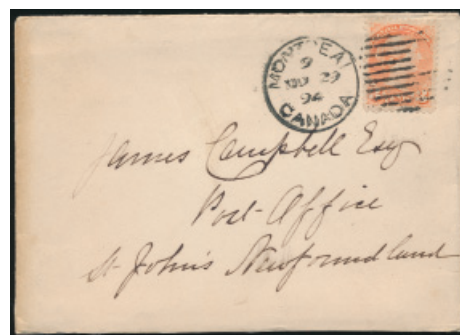 MONTREAL
9
NO 29
94
CANADA
James Campbell Esq
Post-Office
St John's Newfoundland